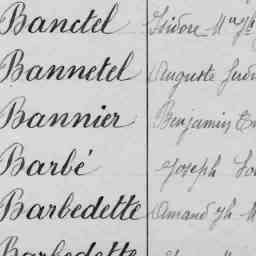 Banctel Isidore M
Bannetel Auguste
Bannier Benjamin
Barbé Joseph
Barbedette Amand Jh M
Barbedette